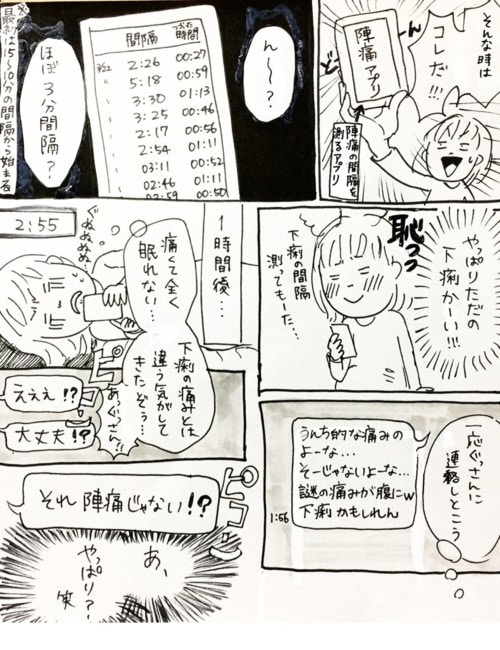 そんな時は
コレだ!!
陣痛アプリ
陣痛の間隔を
測るアプリ
ん〜?
間隔 時間
2:26 00:27
5:18 00:59
3:30 01:13
3:25 00:46
2:17 00:56
2:54 01:11
03:11 00:52
02:46 01:11
02:59 00:50
ほぼ3分間隔?
やっぱりただの
下痢かーい!!!
恥っっ
下痢の間隔
測ってもーた…
1時間後…
2:55
ぐぬぬぬぬ…
痛くて全く
眠れない…
下痢の痛みとは
違う気がして
きたぞぅ…
一応ぐっさんに
連絡しとこう
うんち的な痛みの
よーな…
そーじゃないよーな…
謎の痛みが腹にw
下痢かもしれん
1:56
ピコ
あ、ぐっさん!!
えぇぇ!?
大丈夫!?
ピコ
それ陣痛じゃない!?
あ、
やっぱり?
笑